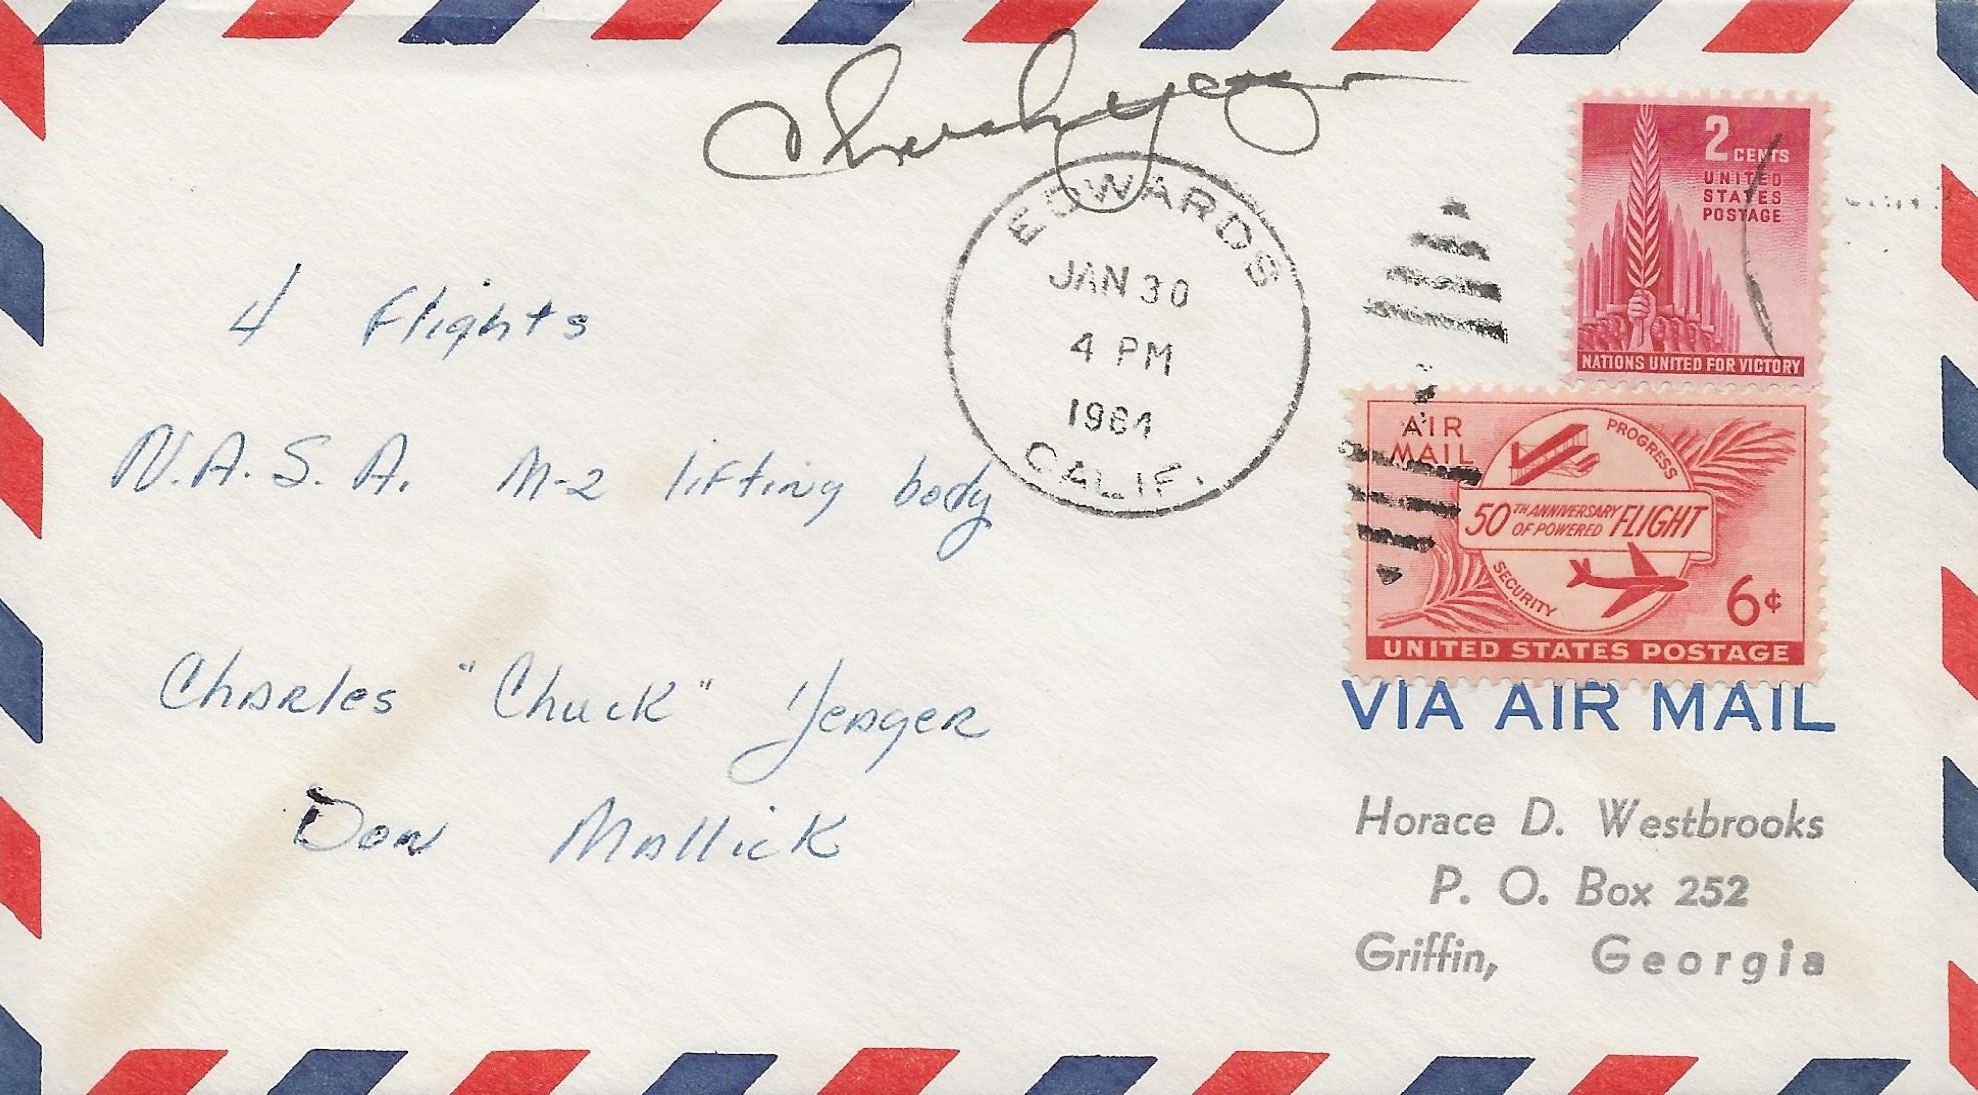 Chuck Yeager
EDWARDS
JAN 30
4 PM
1964
CALIF.
2 CENTS
UNITED
STATES
POSTAGE
NATIONS UNITED FOR VICTORY
AIR
MAIL
PROGRESS
50TH ANNIVERSARY
OF POWERED FLIGHT
SECURITY
6¢
UNITED STATES POSTAGE
VIA AIR MAIL
4 Flights
N.A.S.A. M-2 lifting body
Charles "Chuck" Yeager
Don Mallick
Horace D. Westbrooks
P. O. Box 252
Griffin, Georgia